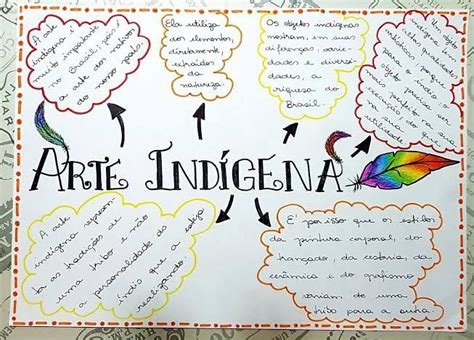 A arte
indígena é
muito importante
no Brasil, pois é
a arte dos nativos
do nosso país.
Ela utiliza
dos elementos,
diretamente,
extraídos
da
natureza.
Os objetos indígenas
mostram, em suas
diferenças, varie-
dades e diversi-
dades, a
riqueza do
Brasil.
qualidades
para o índio o
objeto precisa ser
mais perfeito na sua
utilidade
ARTE INDÍGENA
A arte
indígena represen-
ta as tradições de
uma tribo e não
a personalidade do
índio que a esteja
realizando
É por isso que os estilos
da pintura corporal, do
trançado, da cestaria, da
cerâmica e do grafismo
variam de uma
tribo para a outra.